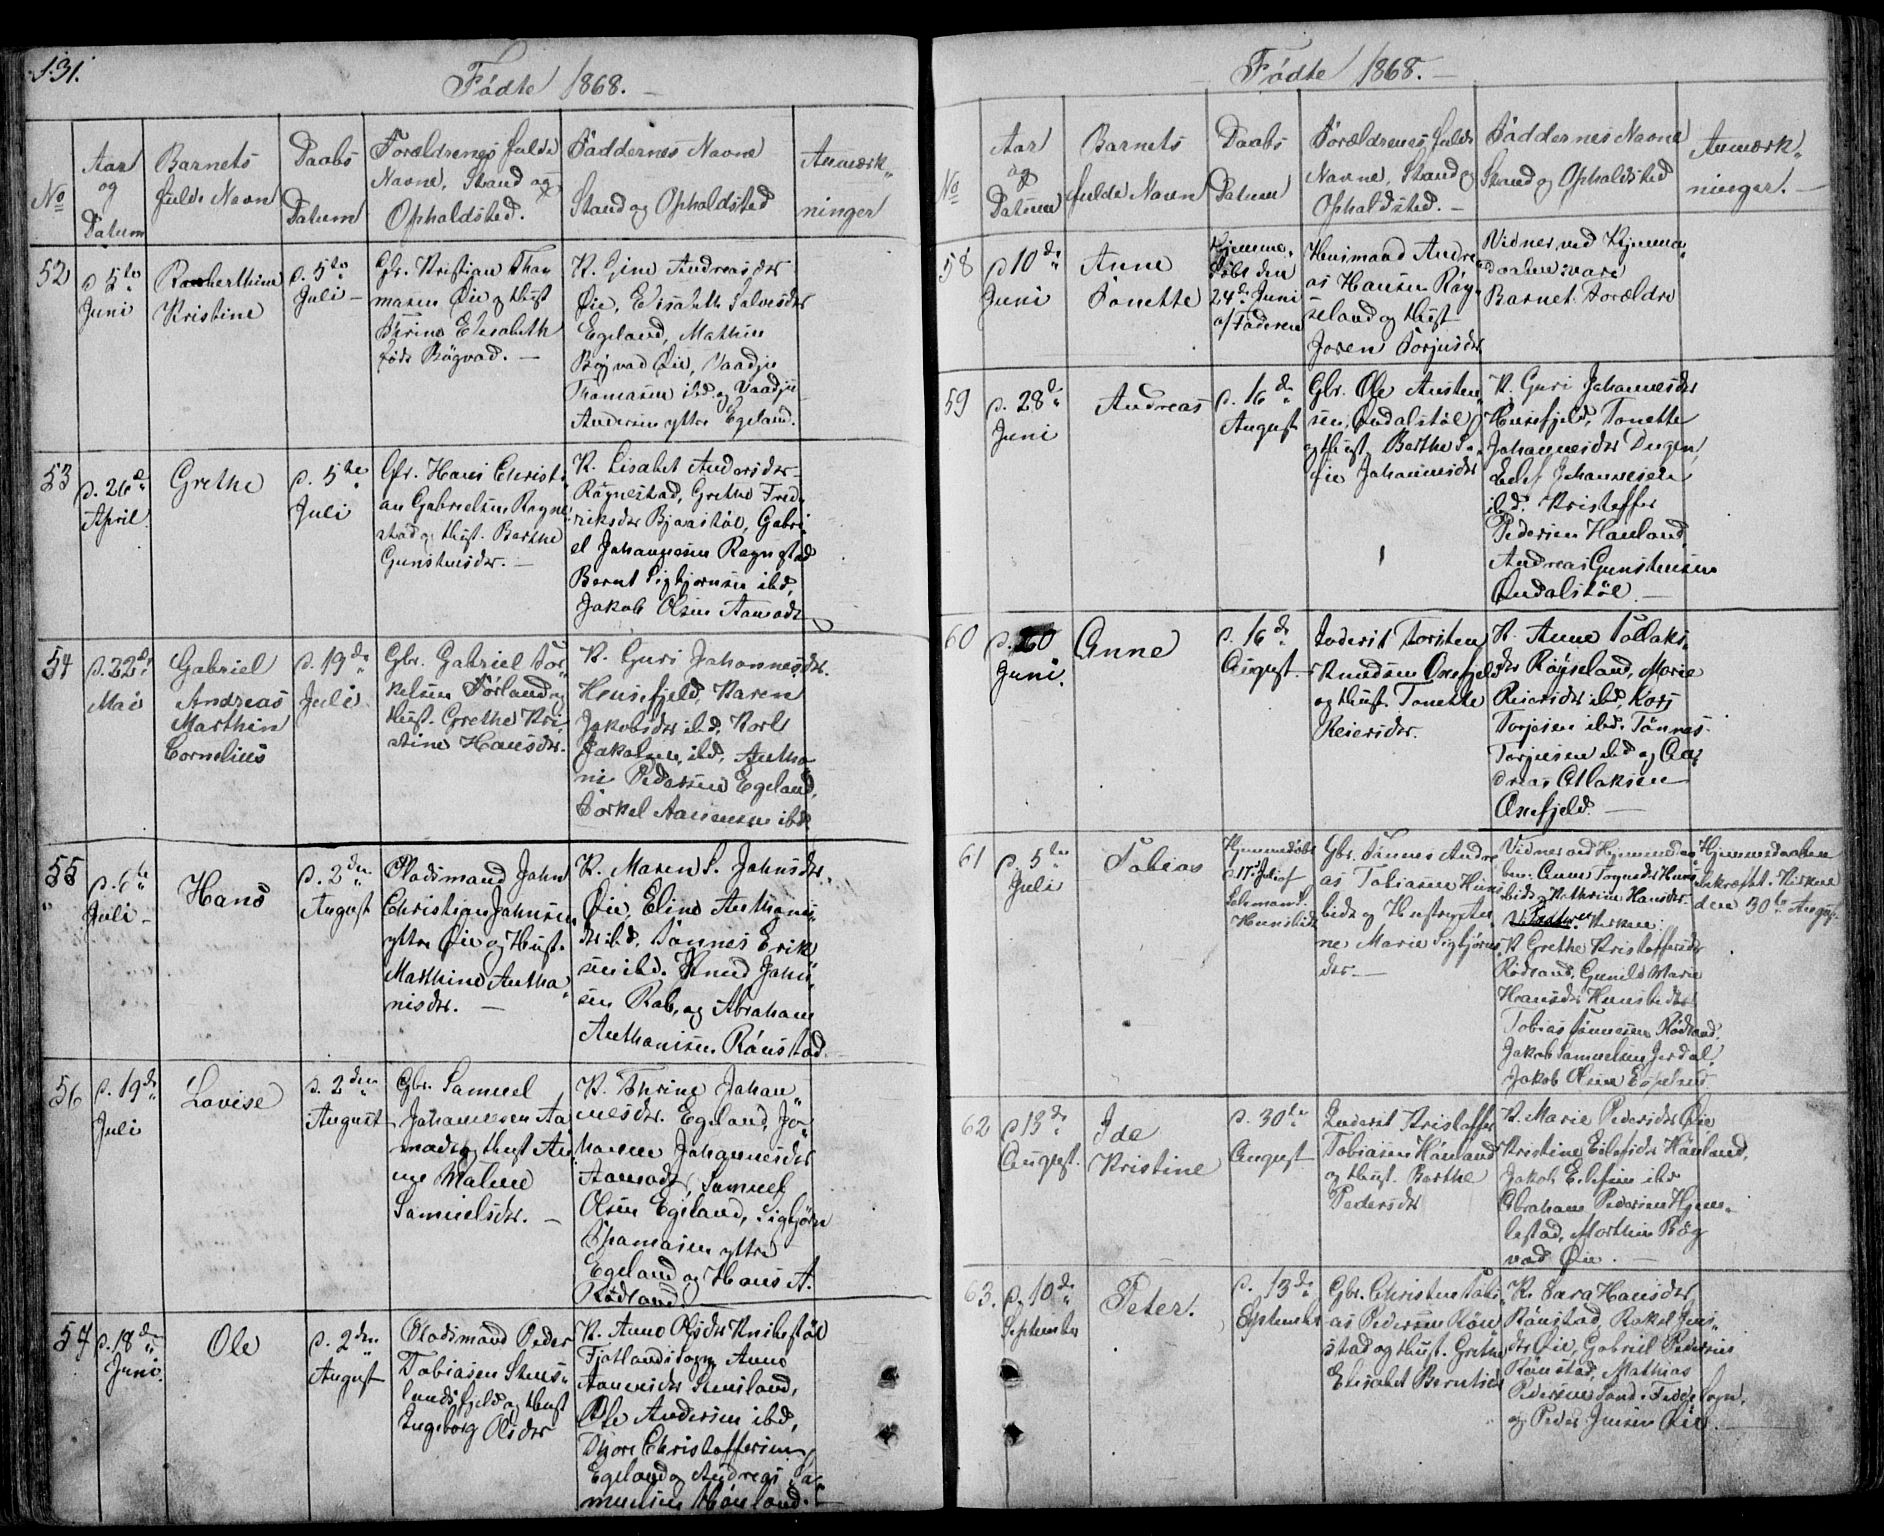 131.
Fødte 1868.
No
Aar
og
Datum
Barnets
fulde Navn
Daabs
Datum
Forældrenes fulde
Navne, Stand og
Opholdsted.
Faddernes Navne
Stand og Opholdsted
Anmærk„
ninger
52
d. 5te
Juni
Kristine
d. 5te
Juli
Gbr. Kristian Tho
masen Øie og Hust
Thrine Elisabeth
født Bøgvad.
K. Gine Andreasdtr
Øie, Elisabeth Salvesdtr
Egeland, Mathias
Bøgvad Øie, Vaadje
Thomasen ibd. og Vaadje
Andersen yttre Egeland.
53
d. 26de
April
Grethe
d. 5te
Juli
Gbr. Hans Christi
an Gabrielsen Røgne
stad og Hust. Berthe
Gunstensdtr.
K. Lisabet Andersdtr
Røgnestad, Grethe Fred„
riksdtr Bjaastøl, Gabri
el Johannesen Røgnestad
Bernt Sigbjørnsen ibd,
Jakob Olsen Aamodt
54
d. 22de
Mai
Gabriel
Andreas
Marthin
Cornelius
d. 19de
Juli
Gbr. Gabriel Tor
kelsen Førland og
Hust. Grethe Kri
stine Hansdtr.
K. Guri Johannesdtr.
Hunsfjeld, Karen
Jakobsdtr ibd, Karl
Jakobsen ibd, Antho
ni Pedersen Egeland,
Torkel Aanensen ibd.
55
d. 6te
Juli
Hans
d. 2den
August
Pladsmand John
Christian Johnsen
yttre Øie og Hust.
Marthine Antho
nisdtr.
K. Maren S. Johnsdtr.
Øie, Eline Anthonis
dtr ibd. Tønnes Erik
sen ibd. Knud John
sen Rob, og Abraham
Anthonisen Rønstad.
56
d. 19de
Juli
Lovise
d. 2den
August
Gbr. Samuel
Johannesen Aa
modt og Hust An
ne Malene
Samuelsdtr.
K. Thrine Johan„
nesdtr. Egeland, Jo
hanne Johannesdtr
Aamodt, Samuel
Olsen Egeland, Sigbjørn
Thomasen yttre
Egeland og Hans A.
Rødland
57
d. 18de
Juni.
Ole
d. 2den
August
Pladsmand Peder
Tobiasen Stens„
landsfjeld og Hust
Ingeborg Olsdtr
K. Anne Olsdtr Knibestøl
Fjotlands Sogn, Anne
Aanensdtr Stensland,
Ole Andersen ibd,
Thore Christoffersen
Egeland og Andreas Sa
muelsen Hønland.
Fødte 1868.
No
Aar
og
Datum
Barnets
fulde Navn
Daabs
Datum
Forældrenes fulde
Navne, Stand og
Opholdsted.
Faddernes Navne
Stand og Opholdsted
Anmærk„
ninger.
58
d 10de
Juni
Anne
Tonette
Hjemme„
døbt den
24de Juni
af Faderen
Huusmand Andre
as Hansen Røy
seland og Hust
Joren Torjusdtr.
Vidner ved Hjemme
daaben: vare
Barnet. Forældre
59
d. 28de
Juni
Andreas
d. 16de
August
Gbr. Ole Austen
sen Qudalstøl
og Hust. Berthe So
fie Johannesdtr
K. Guri Johannesdtr
Hunsfjeld, Tonette
Johannesdtr Dugen,
Edef Johannesen
ibd. Kristoffer
Pedersen Hønland,
Andreas Gunstensen
Qudalstøl.
60
Juni.
Anne
d. 16de
August
Inderst Torsten
Knudsen Oxefjeld
og Hust. Tonette
Reiersdtr.
K. Anne Tollaks
dtr Røyseland, Marie
Reiersdtr ibd, Kors
Torjesen ibd. Tønnes
Torjusen ibd og An
dreas Atlaksen
Oxefjeld.
61
d. 5te
Juli
Tobias
Hjemmedøbt
17. Juli af
Hunsbedt
Gbr. Tønnes Andre
as Tobiasen Huns
bedt og Hustru Ane
ne Marie Sigbjørns
dtr.
Vidner ved Hjemmedaa
ben: Anne Tønnesdtr Huns
bedt og Kathrine Hansdtr.
Kirken:
K. Grethe Kristoffersdtr
Rødland, Gunild Marie
Hansdtr Hunsbedt
Tobias Tønnesen Rødland,
Jakob Samuelsen Jerdal,
Jakob Olsen Espelund
Hjemmedaaben
bekræft. i Kirken
den 30te August
62
d 13de
August.
Ida
Kristine
d. 30te
August
Inderst Kristoffer
Tobiasen Hønland
og Hust. Berthe
Pedersdtr
K. Marie Pedersdtr Øie
Kristine Eilefsdtr Hønland,
Jakob Eilefsen ibd
Abraham Pedersen Hjem„
lestad, Marthin Bøg
vad Øie.
63.
d. 10de
September
Peter.
d. 13de
September
Gbr. Christen Tobi
as Pedersen Røn
stad og Hust. Grethe
Elisabet Berntsdtr
K. Sara Hansdtr
Rønstad, Rakel Jens„
dtr Øie, Gabriel Pedersen
Rønstad, Mathias
Pedersen Sand i Fede Sogn,
og Peder Jensen Øie.